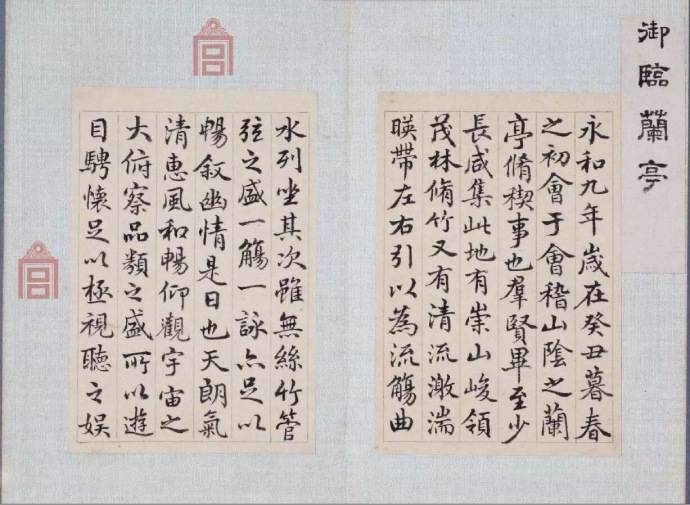 御臨蘭亭
永和九年歲在癸丑暮春
之初會于會稽山陰之蘭
亭脩稧事也羣賢畢至少
長咸集此地有崇山峻領
茂林脩竹又有清流激湍
暎帶左右引以為流觴曲
水列坐其次雖無絲竹管
弦之盛一觴一詠亦足以
暢敘幽情是日也天朗氣
清惠風和暢仰觀宇宙之
大俯察品類之盛所以遊
目騁懷足以極視聽之娛
宮
宮